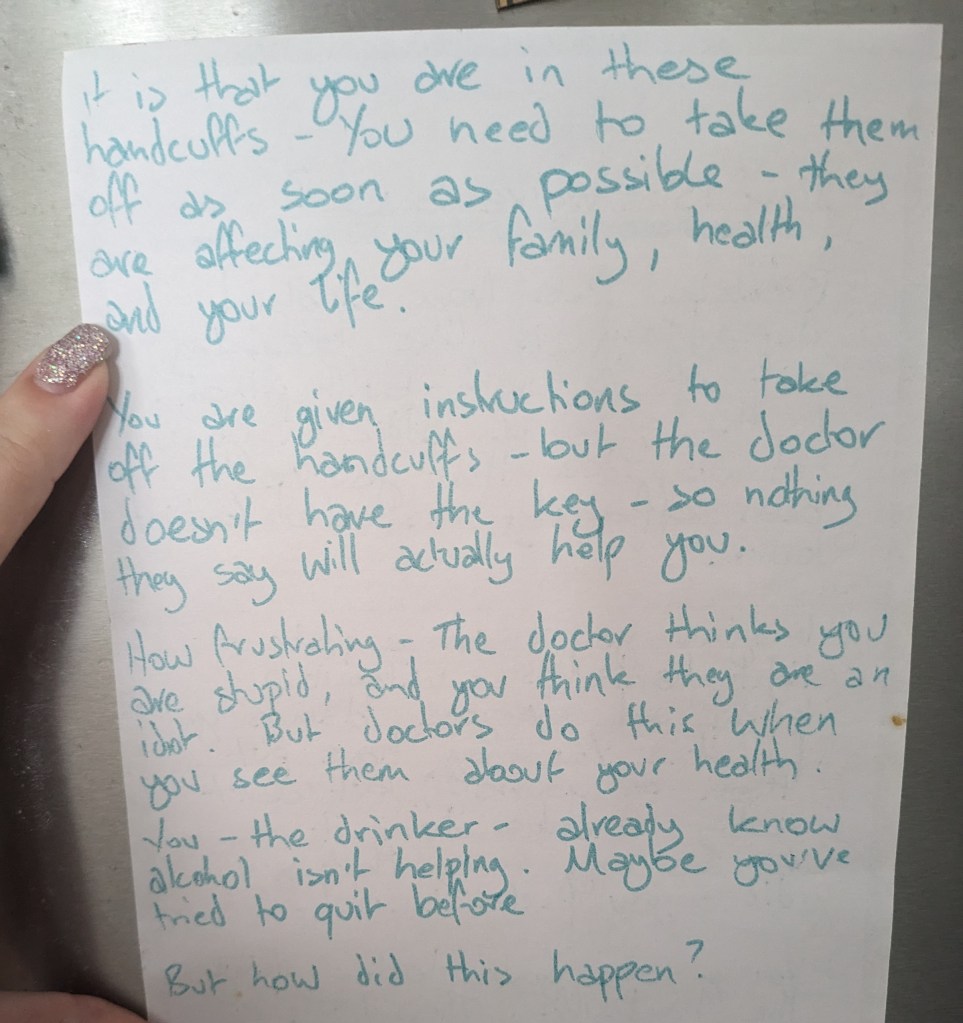 it is that you are in these
handcuffs - You need to take them
off as soon as possible - they
are affecting your family, health,
and your life.
You are given instructions to take
off the handcuffs - but the doctor
doesn't have the key - so nothing
they say will actually help you.
How frustrating - The doctor thinks you
are stupid, and you think they are an
idiot. But doctors do this when
you see them about your health.
You - the drinker - already know
alcohol isn't helping. Maybe you've
tried to quit before
But how did this happen?